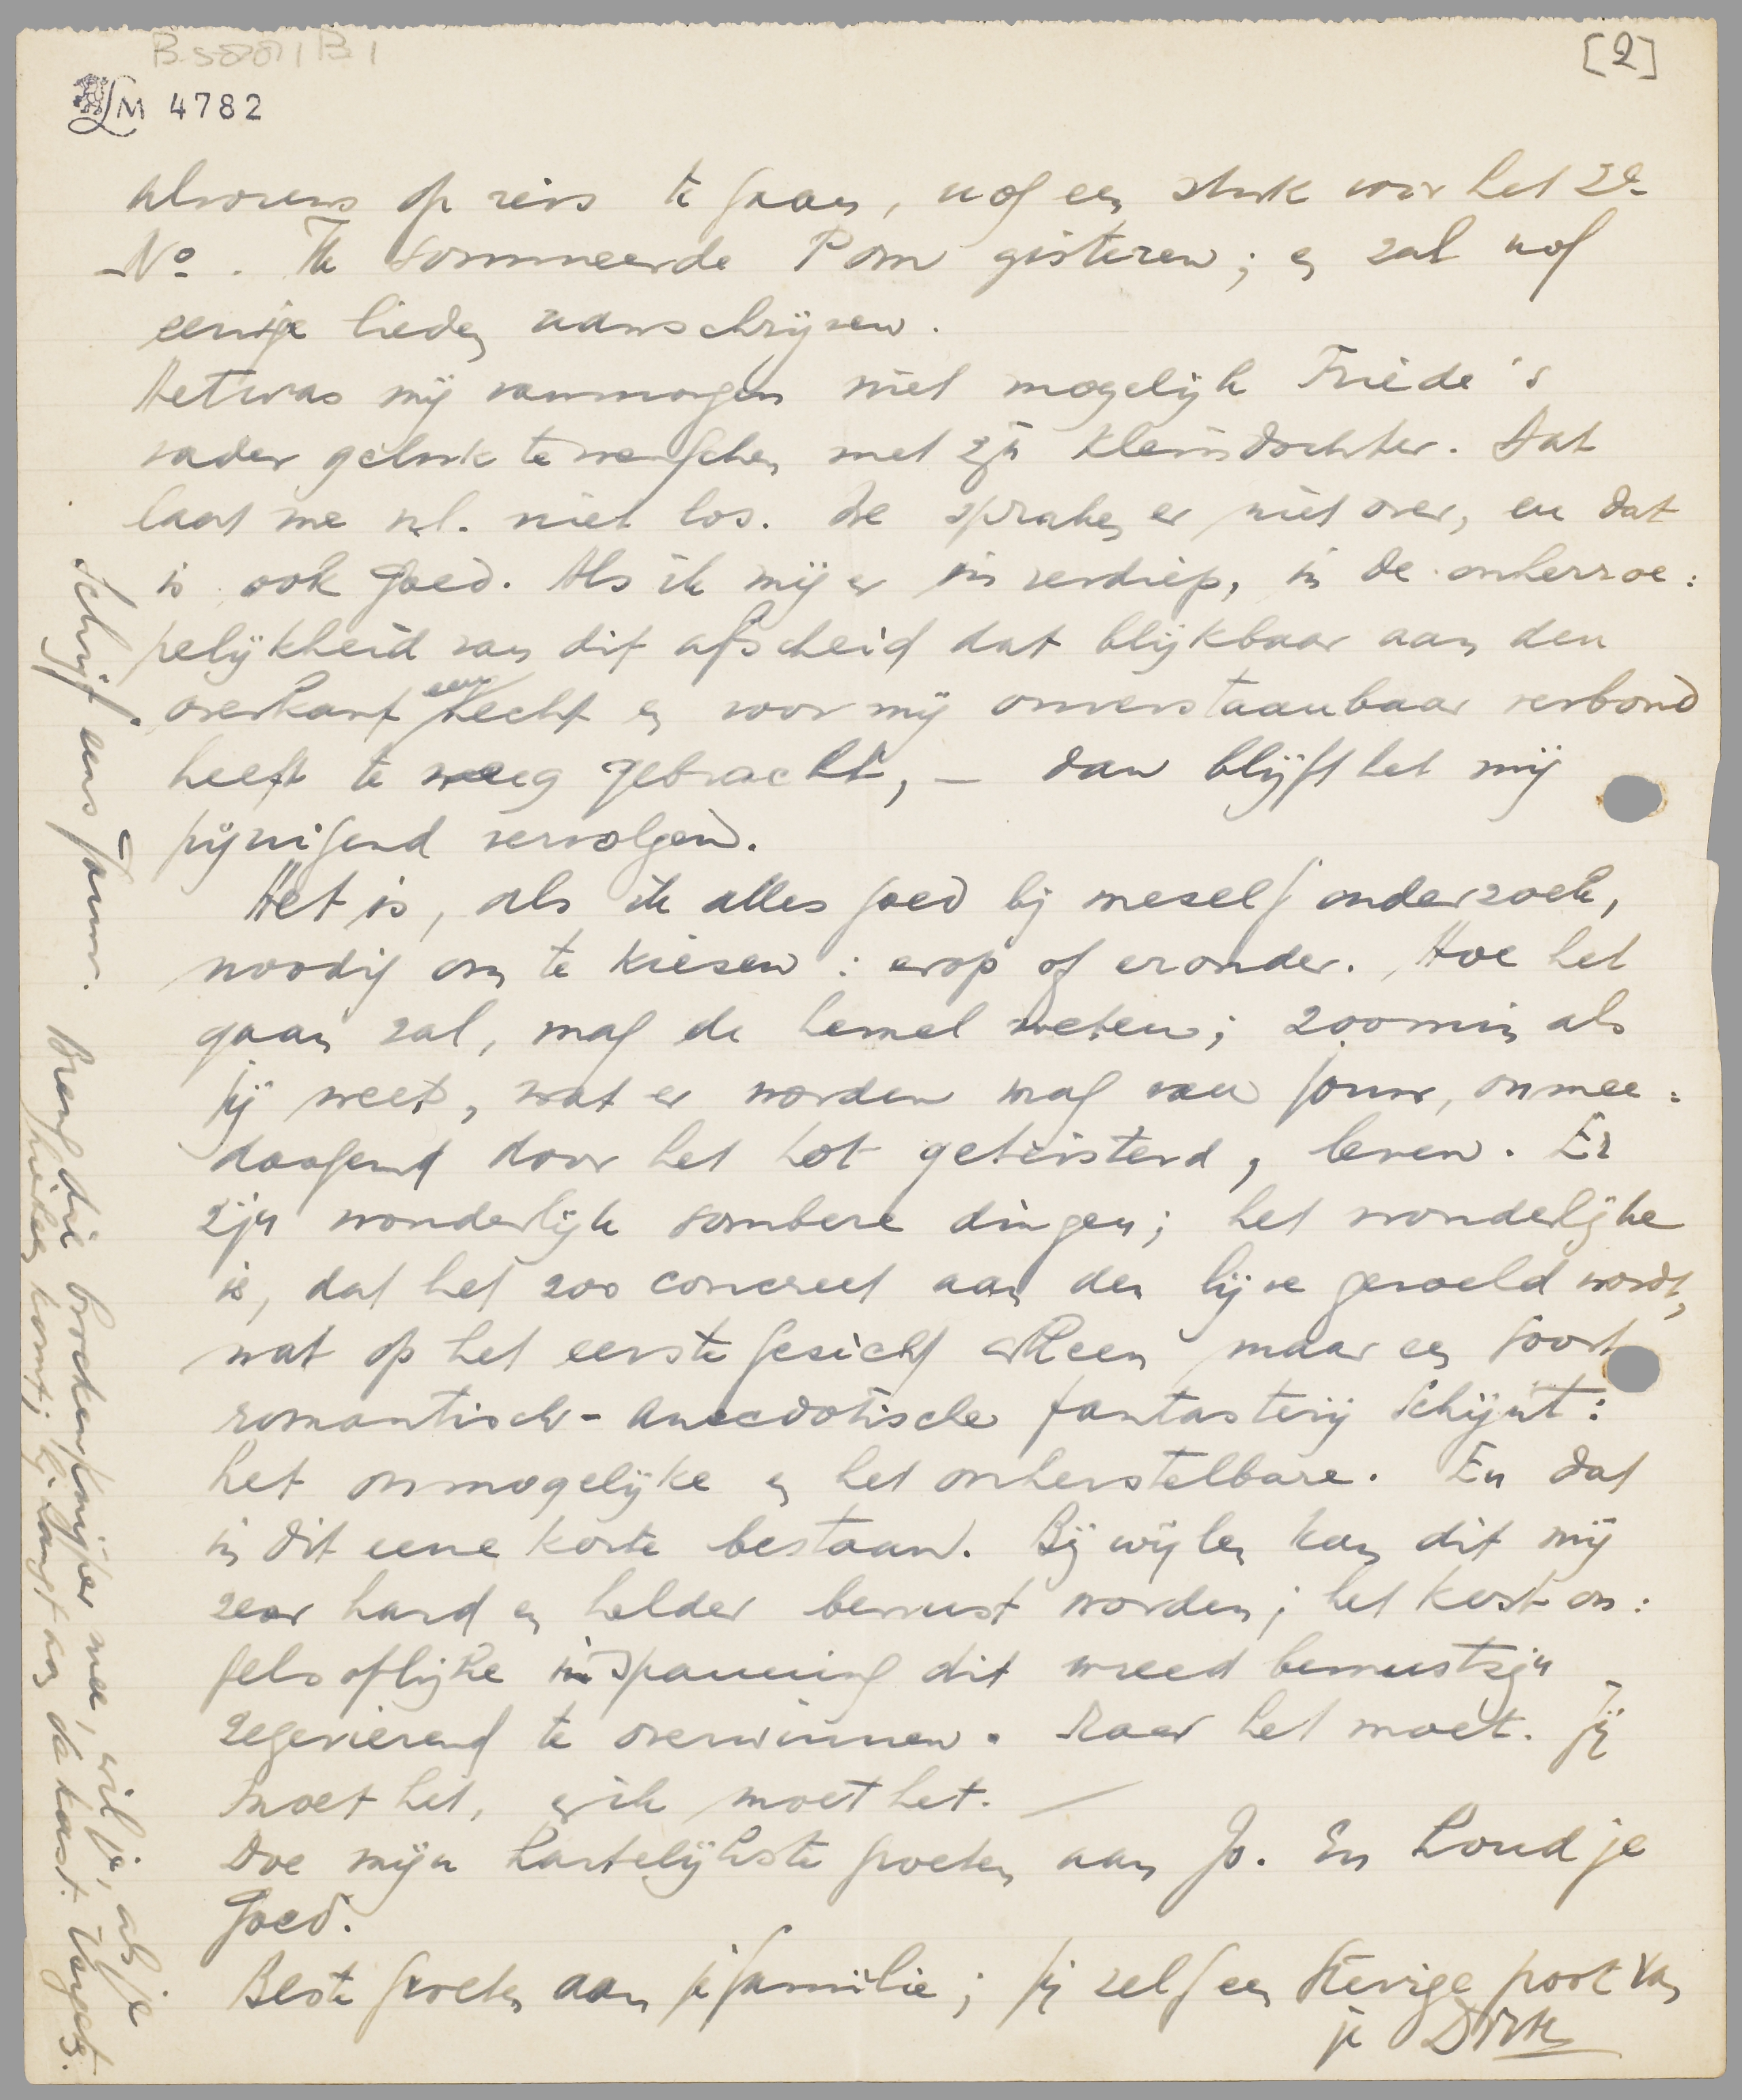 B 5001 B 1
[2]
LM 4782
alvorens op reis te gaan, nog een stuk voor het 2e
No. Ik sommeerde Pom gisteren; en zal nog
eenige lieden aanschrijven.
Het was mij vanmorgen niet mogelijk Friede's
vader geluk te wenschen met zijn kleindochter. Dat
laat me nl. niet los. We spraken er niet over, en dat
is ook goed. Als ik mij er in verdiep, in de onherroe:
pelijkheid van dit afscheid dat blijkbaar aan den
overkant een hecht en voor mij onverstaanbaar verbond
heeft te weeg gebracht, – dan blijft het mij
pijnigend vervolgen.
Het is, als ik alles goed bij meself onderzoek,
noodig om te kiesen: erop of eronder. Hoe het
gaan zal, mag de hemel weten; zoomin als
jij weet, wat er worden mag van jouw, onmee:
doogend door het lot geteisterd, leven. Er
zijn wonderlijk sombere dingen; het wonderlijke
is, dat het zoo concreet aan den lijve gevoeld wordt,
wat op het eerste gesicht alleen maar een soort
romantisch-anecdotische fantasterij schijnt:
het onmogelijke en het onherstelbare. En dat
in dit eene korte bestaan. Bij wijlen kan dit mij
zeer hard en helder bewust worden; het kost on:
gelooflijke inspanning dit wreed bewustzijn
zegevierend te overwinnen. Maar het moet. Jij
moet het, en ik moet het. –
Doe mijn hartelijkste groeten aan Jo. En houd je
goed.
Beste groeten aan je familie; jij zelf een stevige poot van
je Dirk
Schrijf eens gauw. Breng die broekenknijper mee, wil je, als je
hierheen komt; hij hangt aan de kast. Vergeet.